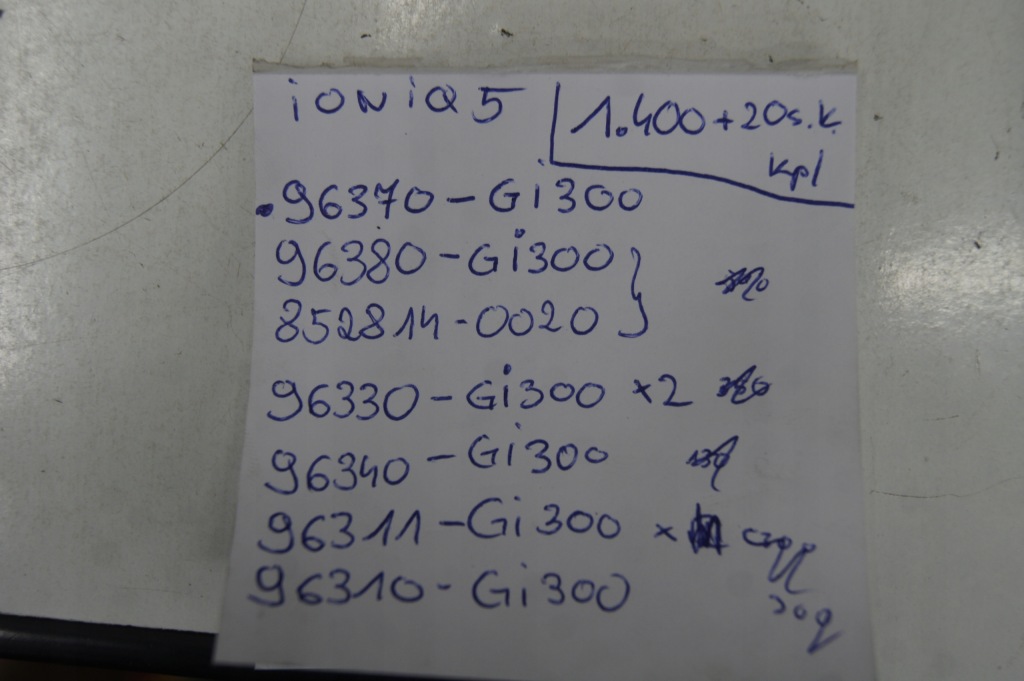 iONiQ5 1.400+20s.k.
kpl
.96370-Gi300
96380-Gi300
852814-0020
96330-Gi300 x2
96340-Gi300
96311-Gi300 x
96310-Gi300